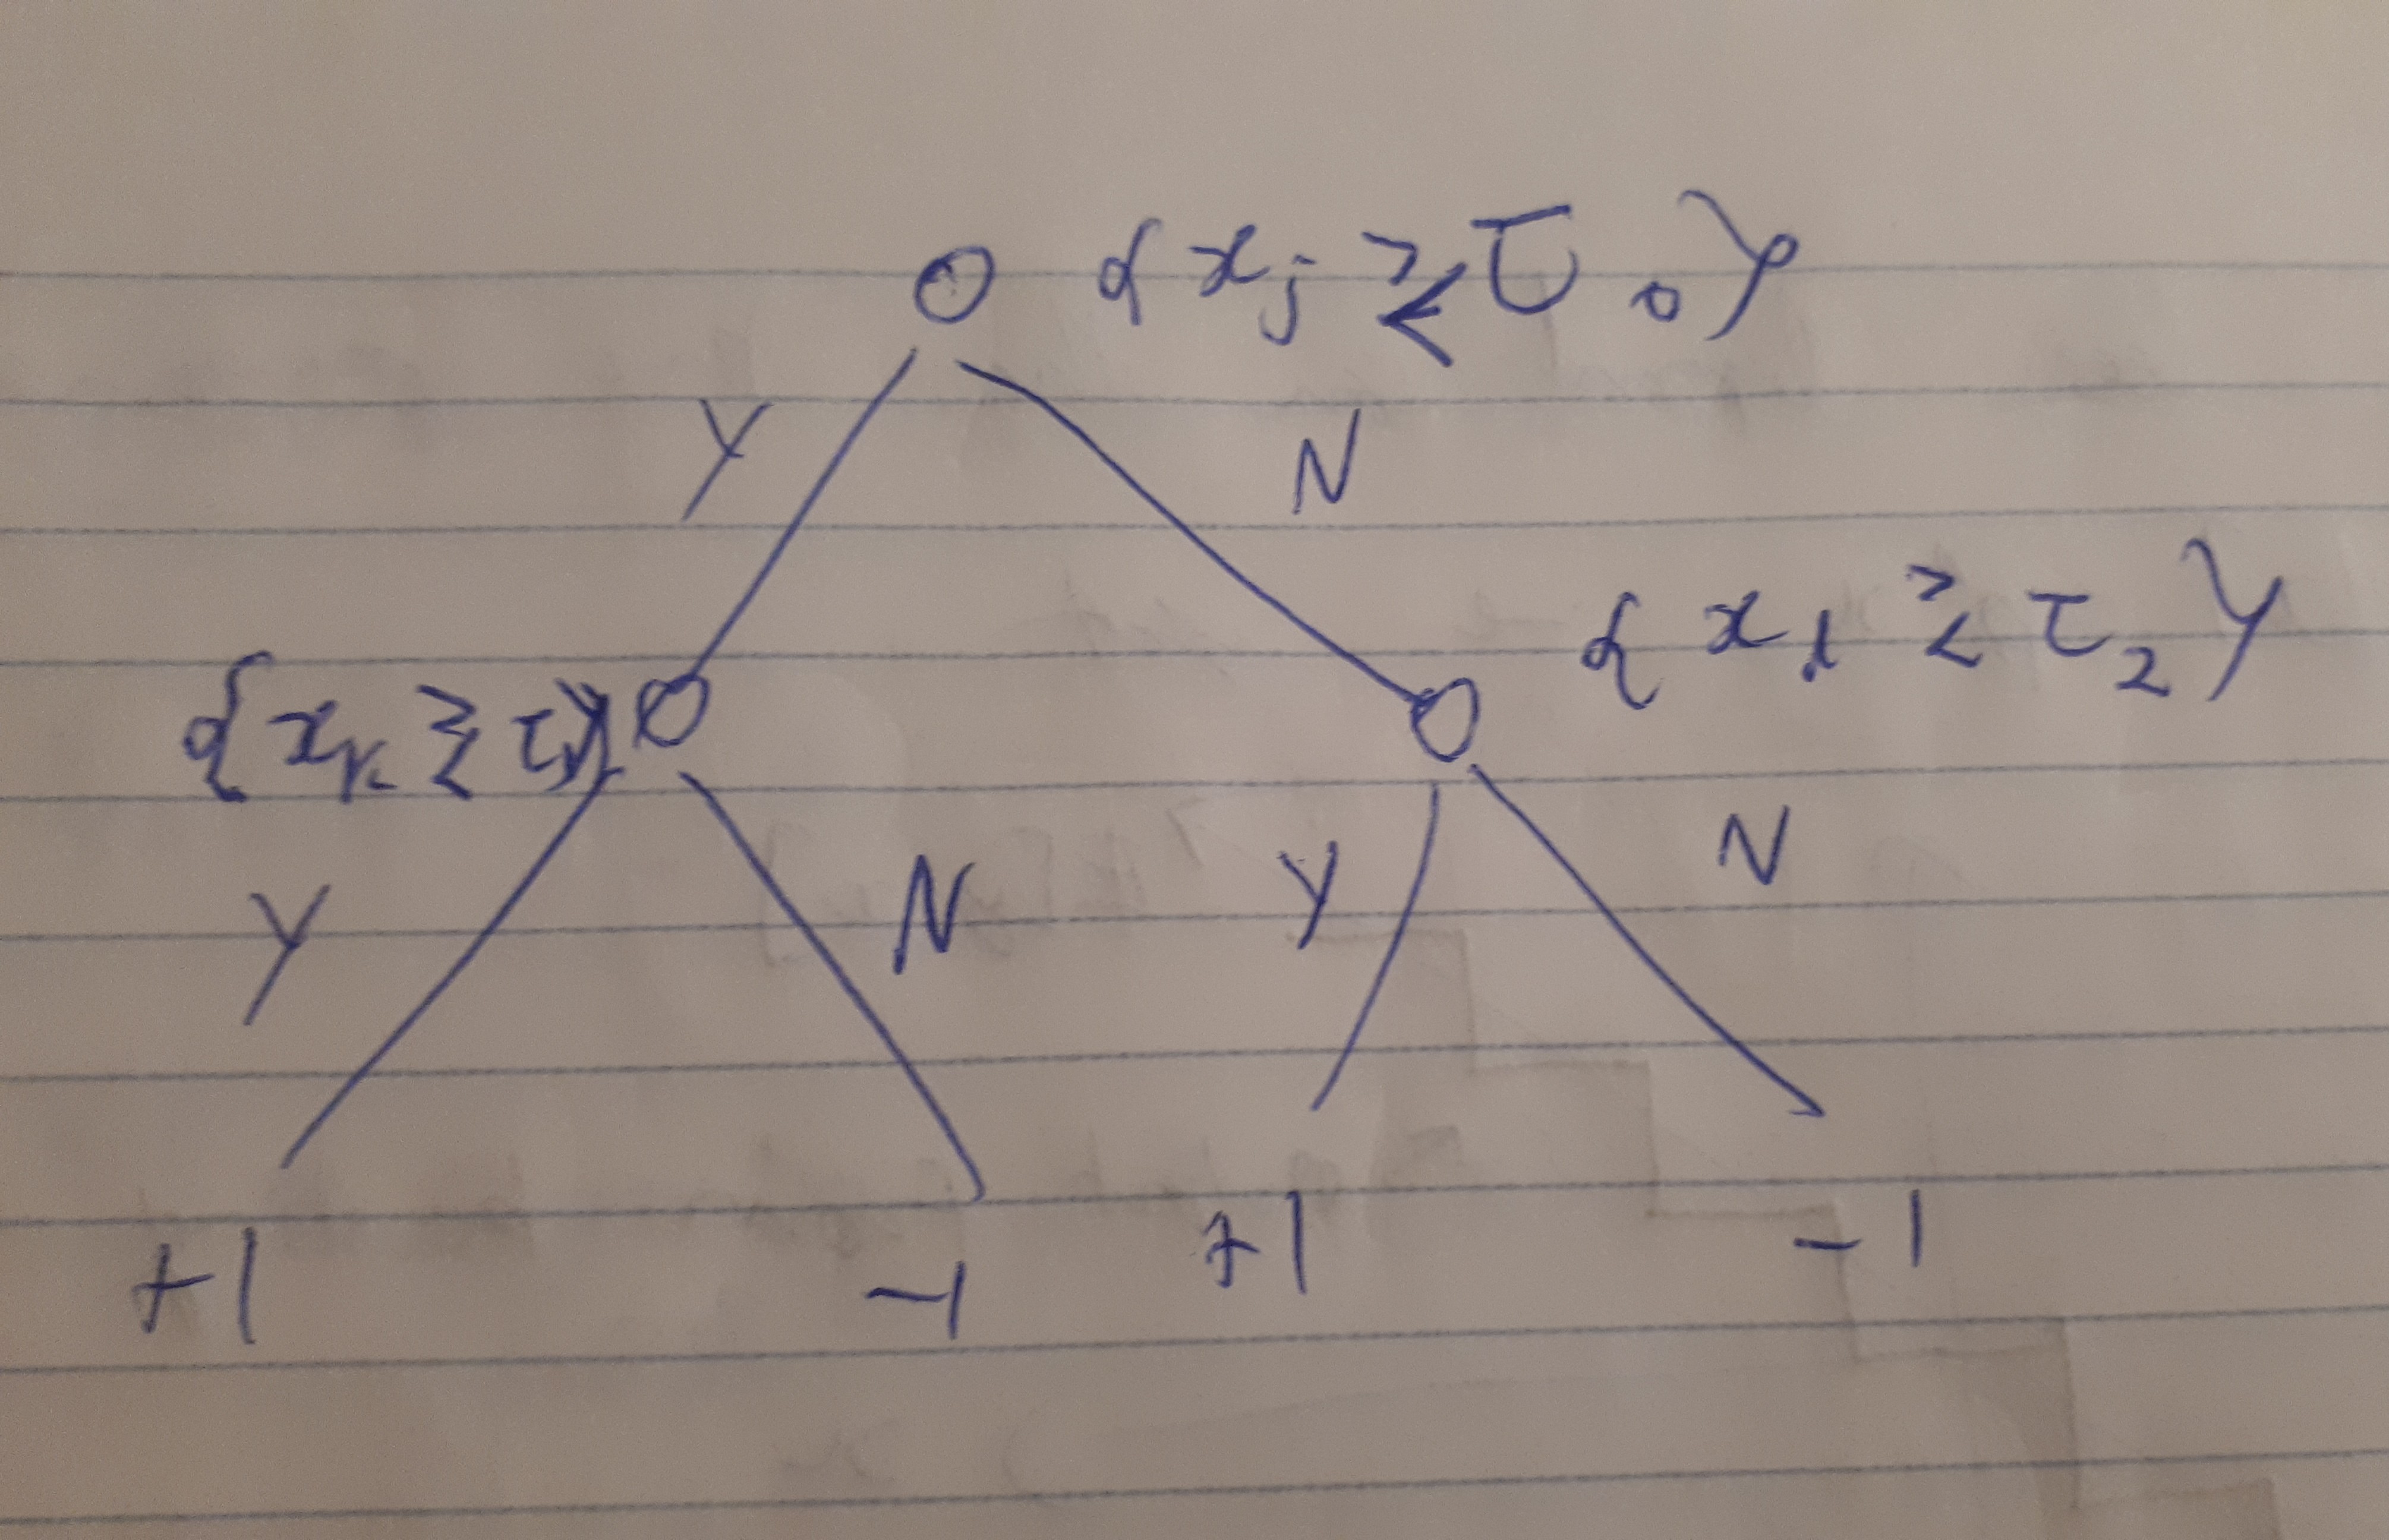 {x_j ≷ τ_0}
Y N
{x_l ≷ τ_2}
{x_k ≷ τ_1}
Y N Y N
+1 -1 +1 -1